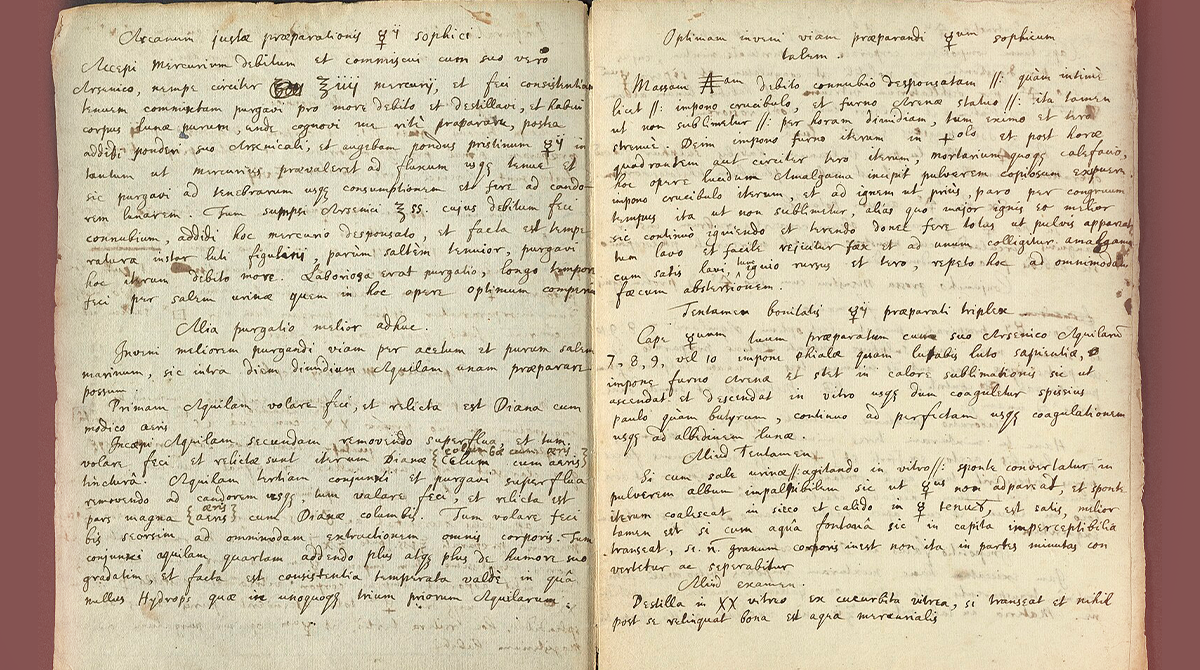 Arcanum justæ præparationis ☿ij sophici.
Accepi Mercurium debitum et commiscui cum suo vero
Arsenico, nempe circiter ℥iiij mercurij, et feci consistentiam
tenuem commixtam purgavi pro more debito et destillavi, et habui
corpus Lunæ purum, unde cognovi me ritè præparasse, postea
addidi ponderi suo Arsenicali, et augebam pondus pristinum ☿ij in
tantum ut mercurius prævaleret ad fluxum usqꝫ tenue et
sic purgavi ad tenebrarum usqꝫ consumptionem et fere ad cando-
rem lunarem. Tum sumpsi Arsenici ℥ss. cujus debitum feci
connubium, addidi hoc mercurio desponsato, et facta est tempe
ratura instar luti figulini, parùm saltèm tenuior, purgavi
hoc iterum debito more. Laboriosa erat purgatio, longo tempore
feci per salem urinæ quem in hoc opere optimum comperi
Alia purgatio melior adhuc.
Inveni meliorem purgandi viam per acetum et purum salem
marinum, sic intra diem dimidium Aquilam unam præparare
possum
Primam Aquilam volare feci, et relicta est Diana cum
modico æris
Incæpi Aquilam secundam removendo superflua, et tum
volare feci et relictæ sunt iterum Dianæ {columbæ cum æris}
tincturâ. Aquilam tertiam conjunxi et purgavi superflua
removendo ad candorem usqꝫ tum volare feci, et relicta est
pars magna {æris} cum Dianæ columbis. Tum volare feci
bis seorsem ad omnimodam extractionem omnis corporis. Tum
conjunxi aquilam quartam addendo plus atqꝫ plus de humore suo
gradatim, et facta est consistentia temperata valdè in quâ
nullus Hydrops quæ in unoquoqꝫ trium priorum Aquilarum.
Optimam inveni viam præparandi ☿um sophicum
talem.
Massam Aam debito connubio desponsatam //: quàm intimè
licet //: impono crucibulo, et furno Arenæ statuo //: ita tamen
ut non sublimetur //: per horam dimidiam, tum eximo et tero
strenue. Dein impono furno iterum in +olo et post horæ
quadrantem aut circiter tero iterum, mortariumquoqꝫ calefacio,
hoc opere lucidum Amalgama incipit pulverem copiosum expuere.
impono crucibulo iterum, et ad ignem ut priùs, paro per congruum
tempus ita ut non sublimetur, aliàs quo major ignis eo melior
sic continuò igniendo et terendo donec fere totus ut pulvis appareat,
tum lavo et facile rejicitur fæx et ad unum colligitur amalgama
cum satis lavi, tunc ignio rursus et tero, repeto hoc ad omnimodam
fæcum abstersionem.
Tentamen bonitatis ☿ij præparati triplex
Cape ☿um tuum præparatum cum suo Arsenico Aquilarū
7, 8, 9, vel 10 impone phialæ quam lutabis luto sapientiæ,
impone furno Arenæ et stet in calore sublimationis sic ut
ascendat et descendat in vitro usqꝫ dum coaguletur spissius
paulo quàm butyrum, continuo ad perfectam usqꝫ coagulationem
usqꝫ ad albedinem lunæ.
Aliud Tentamen
Si cum sale urinæ //: agitando in vitro //: sponte convertatur in
pulverem album impalpabilem sic ut ☿us non adpareat, et sponte
iterum coalescat in sicco et calido in ☿ tenuē, est satis, melior
tamen est si cum aquâ fontanâ sic in capita imperceptibilia
transeat, se. n̄. granum corporis inest non ita in partes minutas con
vertetur ac seperabitur
Aliud examen.
Destilla in XX vitreo ex cucurbita vitrea, si transeat et nihil
post se relinquat bona est aqua mercurialis